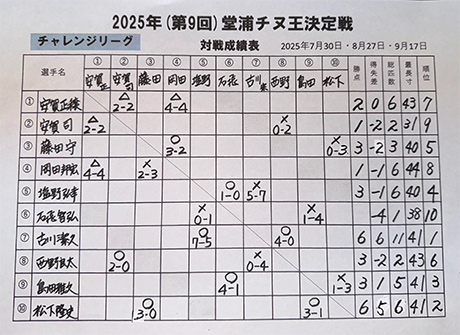 2025年(第9回)堂浦チヌ王決定戦
チャレンジリーグ 対戦成績表 2025年7月30日・8月27日・9月17日
選手名 ① ② ③ ④ ⑤ ⑥ ⑦ ⑧ ⑨ ⑩ 勝点 得失差 総匹数 最長寸 順位
安賀正 安賀司 藤田 岡田 塩野 石花 古川 西野 島田 松下
① 安賀正 △ 2-2 △ 4-4 2 0 6 43 7
② 安賀 司 △ 2-2 × 0-2 1 -2 2 31 9
③ 藤田 守 ○ 3-2 × 0-3 3 -2 3 40 5
④ 岡田 △ 4-4 × 2-3 1 -1 6 44 8
⑤ 塩野 ○ 1-0 × 5-7 3 -1 6 40 4
⑥ 石花 × 0-1 × 1-4 -4 1 38 10
⑦ 古川 ○ 7-5 ○ 4-0 6 6 11 41 1
⑧ 西野 ○ 2-0 × 0-4 3 -2 2 43 6
⑨ 島田 ○ 4-1 × 1-3 3 1 5 41 3
⑩ 松下隆史 ○ 3-0 ○ 3-1 6 5 6 41 2